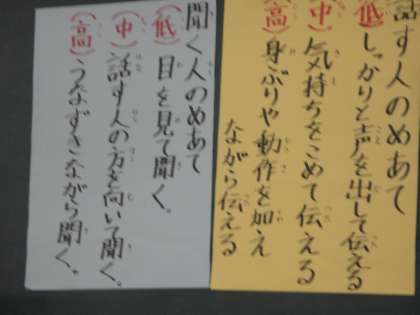 話す人のめあて
(低)しっかりと声を出して伝える
(中)気持ちをこめて伝える
(高)身ぶりや動作を加え
ながら伝える
聞く人のめあて
(低)目を見て聞く。
(中)話す人の方を向いて聞く。
(高)うなずきながら聞く。